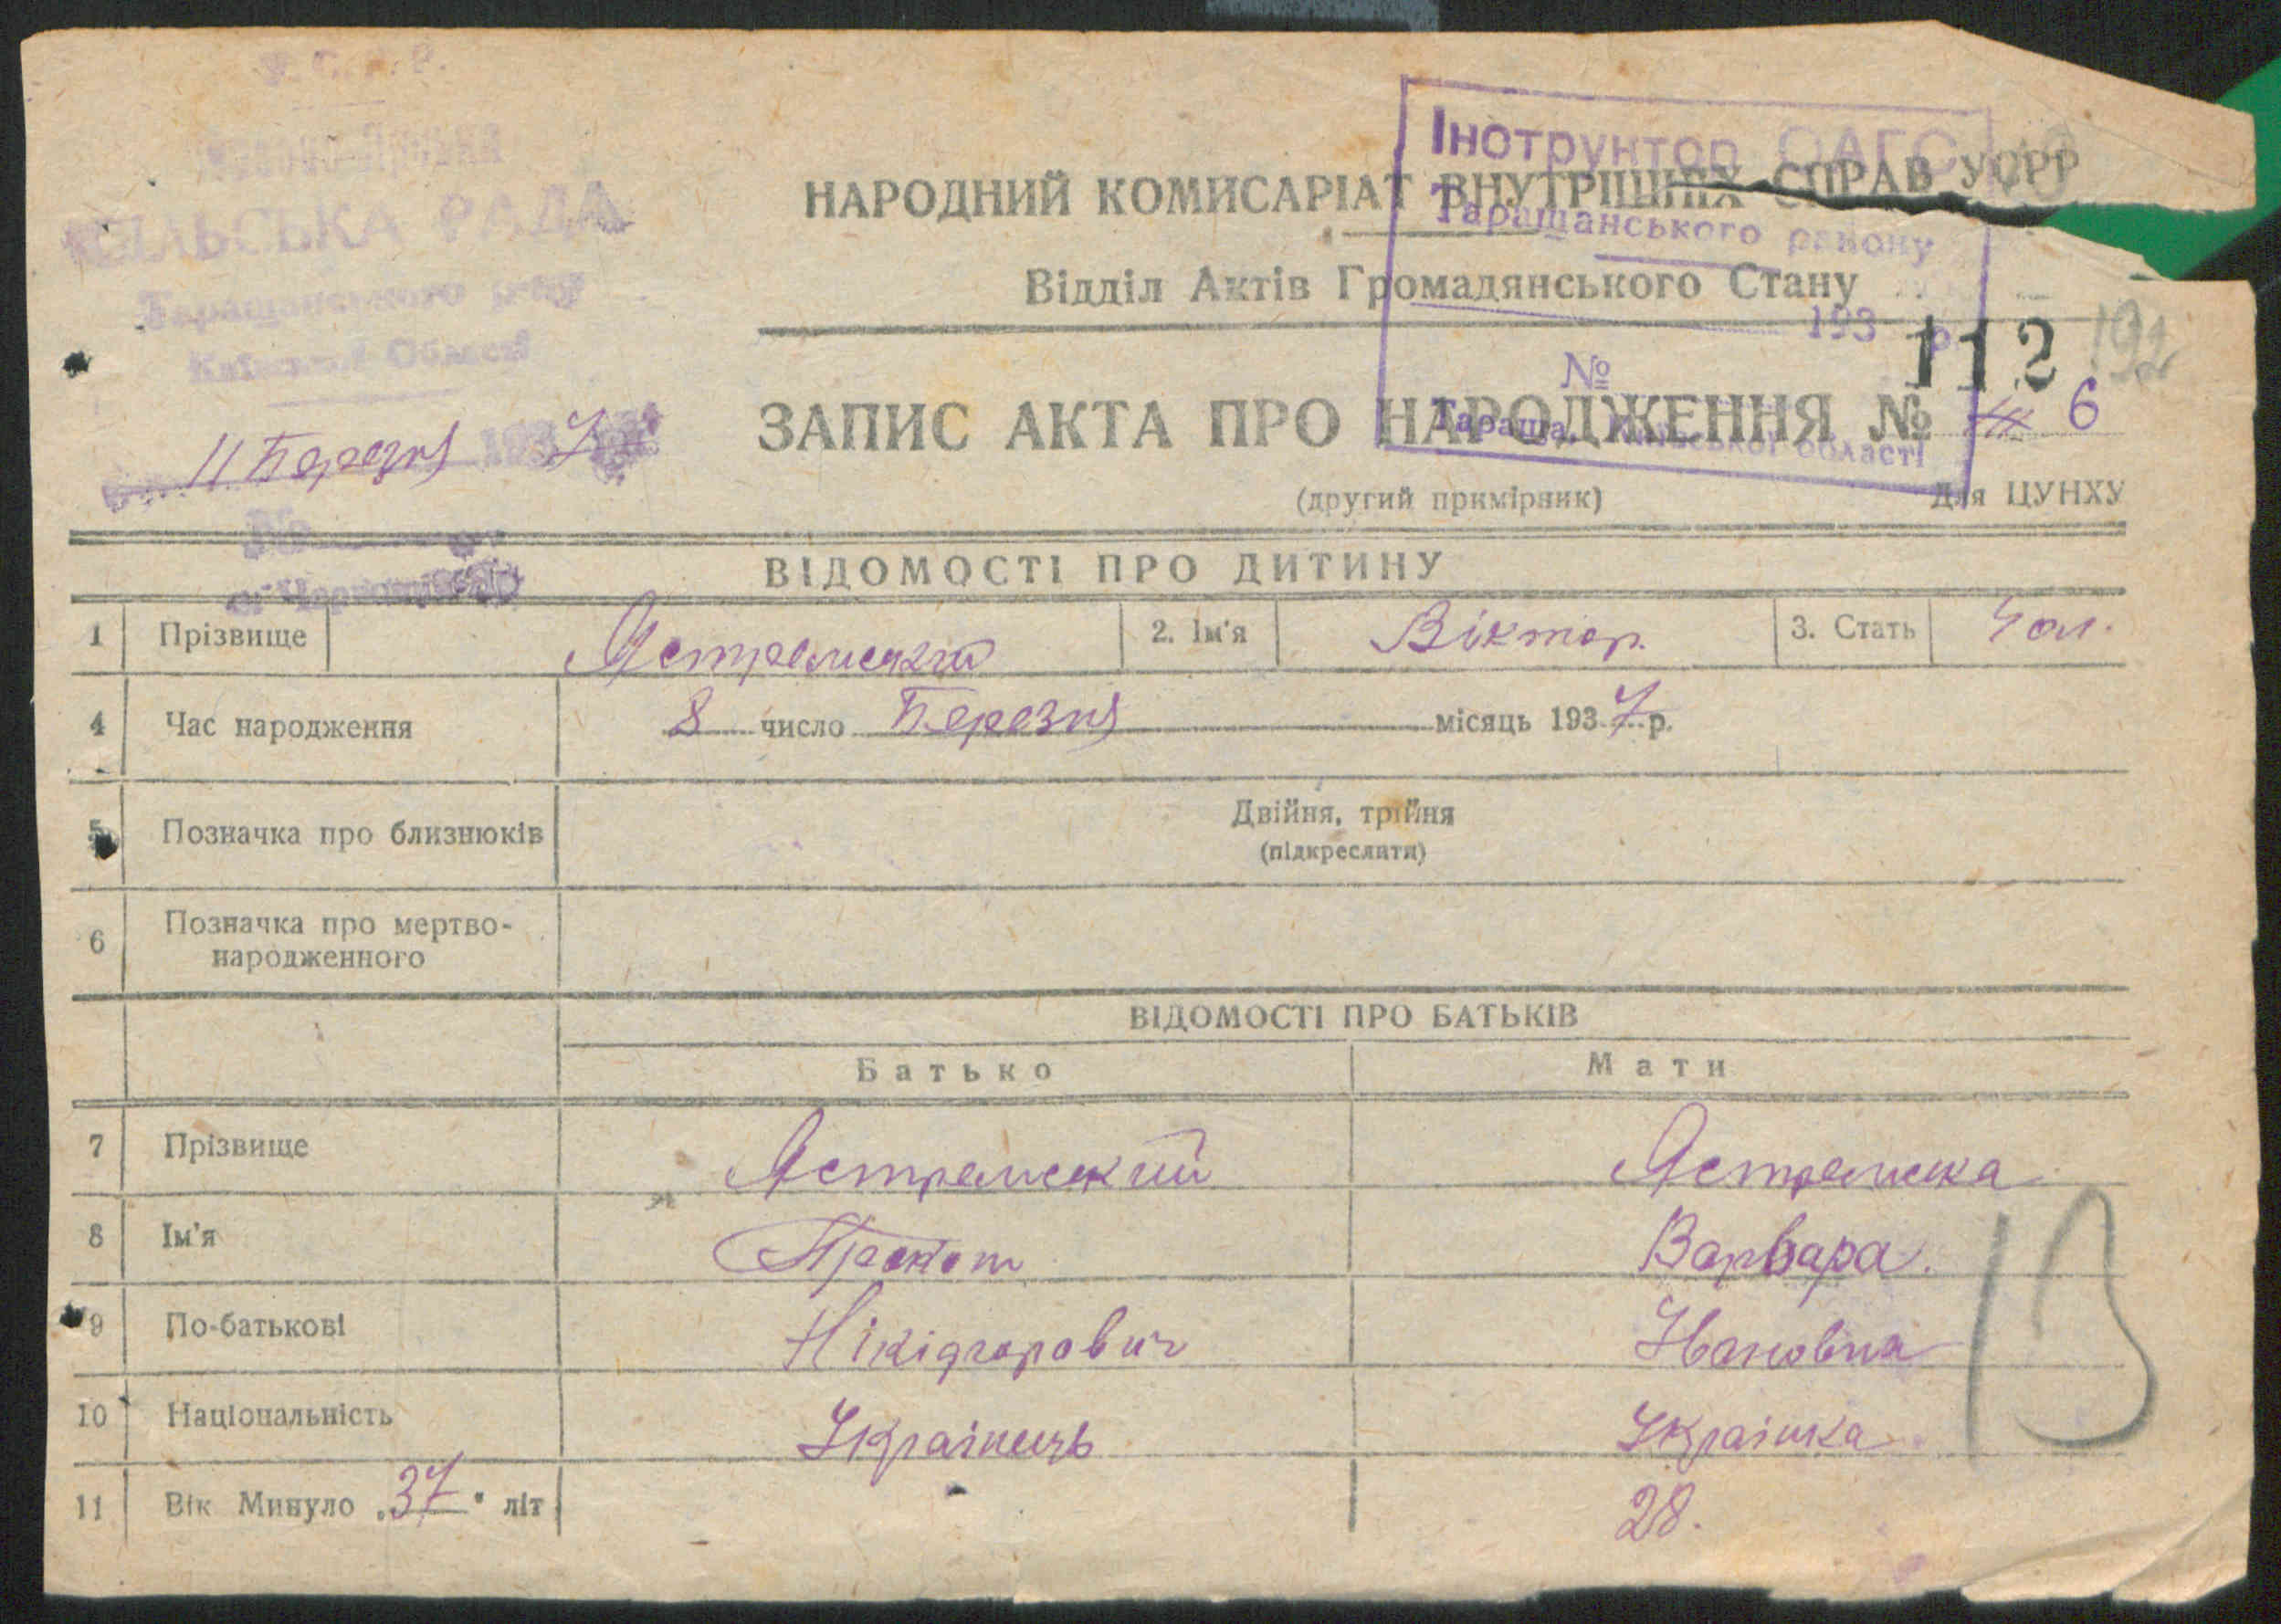 У. С. Р. Р.
СІЛЬСЬКА РАДА
Таращанського р-ну
Київської Області
11 Березня 1937
№
Інструктор ОАГС
Таращанського району
193 р.
№
Тараща, Київської області
НАРОДНИЙ КОМИСАРІАТ ВНУТРІШНІХ СПРАВ УСРР
Відділ Актів Громадянського Стану
112 192
ЗАПИС АКТА ПРО НАРОДЖЕННЯ № 6
(другий примірник) Для ЦУНХУ
ВІДОМОСТІ ПРО ДИТИНУ
1 Прізвище Ястремський 2. Ім'я Віктор. 3. Стать Чол.
4 Час народження 8 число Березня місяць 1937 р.
5 Позначка про близнюків Двійня, трійня
(підкреслити)
6 Позначка про мертво-
народженного
ВІДОМОСТІ ПРО БАТЬКІВ
Батько Мати
7 Прізвище Ястремский Ястремска
8 Ім'я Прокоп Варвара.
9 По-батькові Нікіфорович Івановна
10 Національність Українець Українка
11 Вік Минуло „37" літ 28.
13